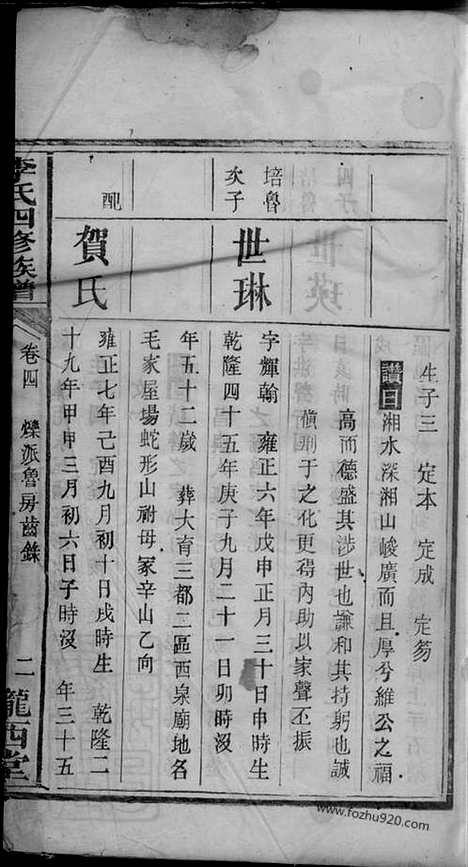 生子三 定本 定成 定芴
讚曰湘水深湘山峻廣而且厚兮維公之福
高而德盛其涉世也謙和其持躬也誠
愼刑于之化更得內助以家聲丕振
培魯
次子
世琳
字輝翰 雍正六年戊申正月三十日申時生
乾隆四十五年庚子九月二十一日卯時沒
年五十二歲 葬大育三都二區西泉廟地名
毛家屋場蛇形山祔母冢辛山乙向
配
賀氏
雍正七年己酉九月初十日戌時生 乾隆二
十九年甲申三月初六日子時沒 年三十五
李氏四修族譜
卷四 爍派魯房齒錄
二
隴西堂
www.fozhu920.com